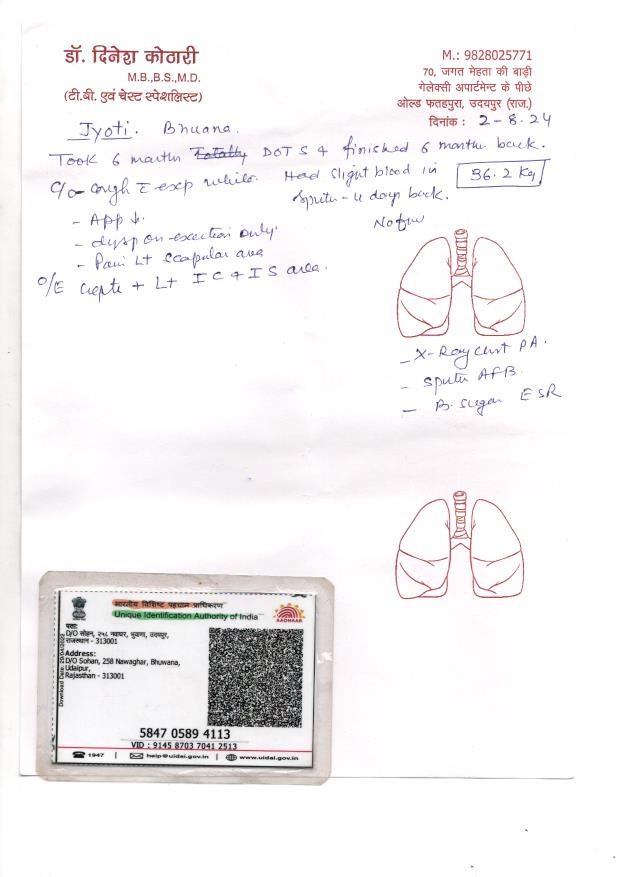 डॉ. दिनेश कोठारी
M.B.,B.S.,M.D.
(टी.बी. एवं चेस्ट स्पेशलिस्ट)
M.: 9828025771
70, जगत मेहता की बाड़ी
गेलेक्सी अपार्टमेन्ट के पीछे
ओल्ड फतहपुरा, उदयपुर (राज.)
दिनांक : 2-8-24
Jyoti. Bhuana.
Took 6 months Totally DOTS & finished 6 months back.
C/o cough c exp white. Had slight blood in
sputu - 4 days back.
36.2 Kg
- App ↓.
- dysp on exertion only.
- Pain Lt scapular area
No fev
O/E Crepts + Lt I C & I S area.
- X-Ray chest PA.
- Sputu AFB.
- B. Sugar ESR
भारतीय विशिष्ट पहचान प्राधिकरण
Unique Identification Authority of India
AADHAAR
पता:
D/O सोहन, २५८ नवाघर, भुवाणा, उदयपुर,
राजस्थान - 313001
Address:
D/O Sohan, 258 Nawaghar, Bhuwana,
Udaipur,
Rajasthan - 313001
5847 0589 4113
VID : 9145 8703 7041 2513
1947 | help@uidai.gov.in | www.uidai.gov.in